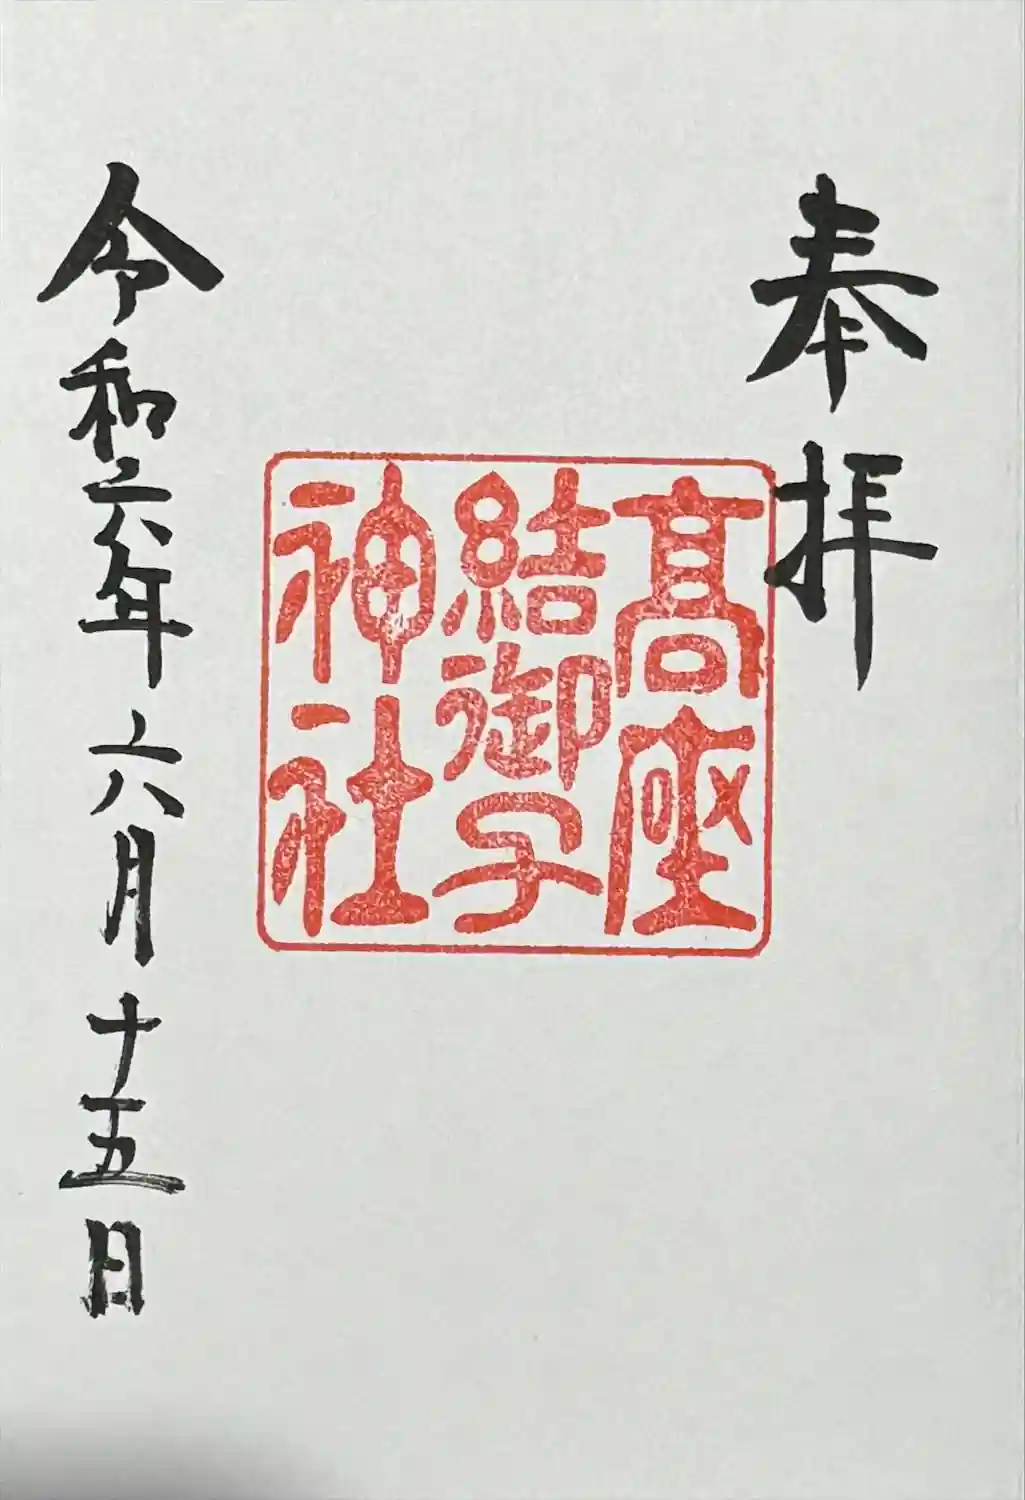 奉拝
髙座
結御子
神社
令和六年六月十五日